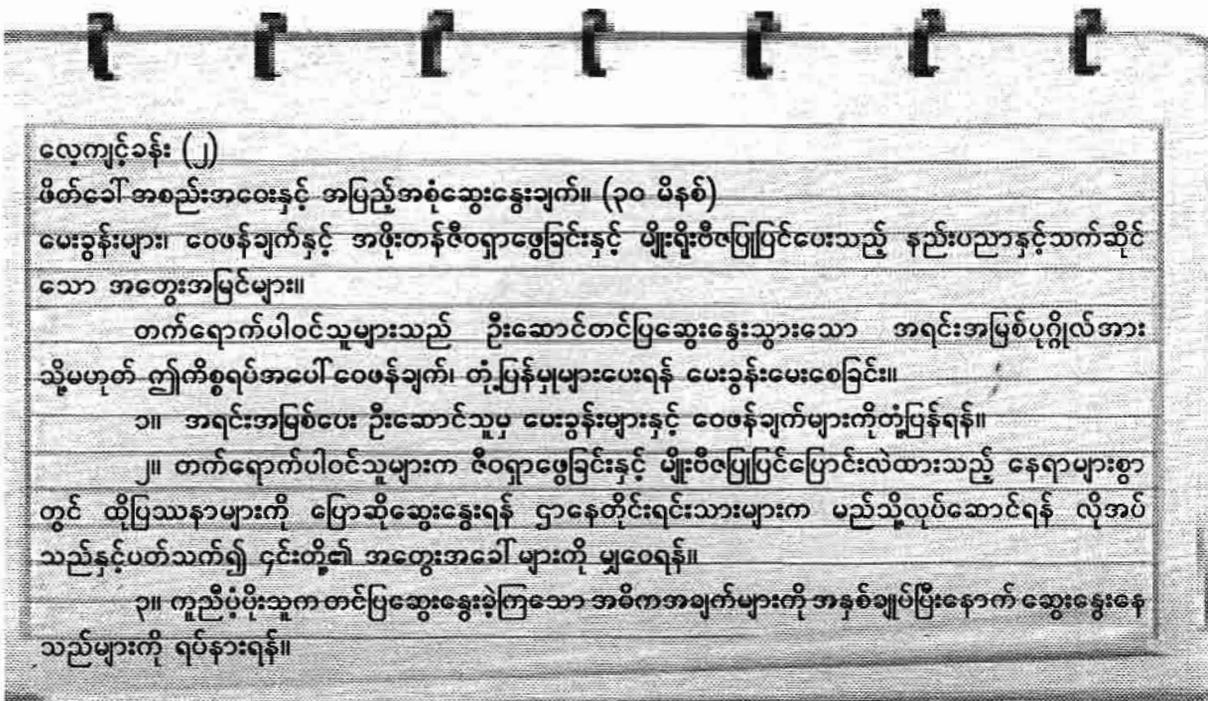 လေ့ကျင့်ခန်း (၂)
ဖိတ်ခေါ် အစည်းအဝေးနှင့် အပြည့်အစုံဆွေးနွေးချက်။ (၃၀ မိနစ်)
မေးခွန်းများ၊ ဝေဖန်ချက်နှင့် အဖိုးတန်ဇီဝရှာဖွေခြင်းနှင့် မျိုးရိုးဗီဇပြုပြင်ပေးသည့် နည်းပညာနှင့်သက်ဆိုင်
သော အတွေးအမြင်များ။
တက်ရောက်ပါဝင်သူများသည် ဦးဆောင်တင်ပြဆွေးနွေးသွားသော အရင်းအမြစ်ပုဂ္ဂိုလ်အား
သို့မဟုတ် ဤကိစ္စရပ်အပေါ် ဝေဖန်ချက်၊ တုံ့ပြန်မှုများပေးရန် မေးခွန်းမေးစေခြင်း။
၁။ အရင်းအမြစ်ပေး ဦးဆောင်သူမှ မေးခွန်းများနှင့် ဝေဖန်ချက်များကိုတုံ့ပြန်ရန်။
၂။ တက်ရောက်ပါဝင်သူများက ဇီဝရှာဖွေခြင်းနှင့် မျိုးဗီဇပြုပြင်ပြောင်းလဲထားသည့် နေရာများစွာ
တွင် ထိုပြဿနာများကို ပြောဆိုဆွေးနွေးရန် ဌာနေတိုင်းရင်းသားများက မည်သို့လုပ်ဆောင်ရန် လိုအပ်
သည်နှင့်ပတ်သက်၍ ၄င်းတို့၏ အတွေးအခေါ် များကို မျှဝေရန်။
၃။ ကူညီပံ့ပိုးသူက တင်ပြဆွေးနွေးခဲ့ကြသော အဓိကအချက်များကို အနှစ်ချုပ်ပြီးနောက် ဆွေးနွေးနေ
သည်များကို ရပ်နားရန်။